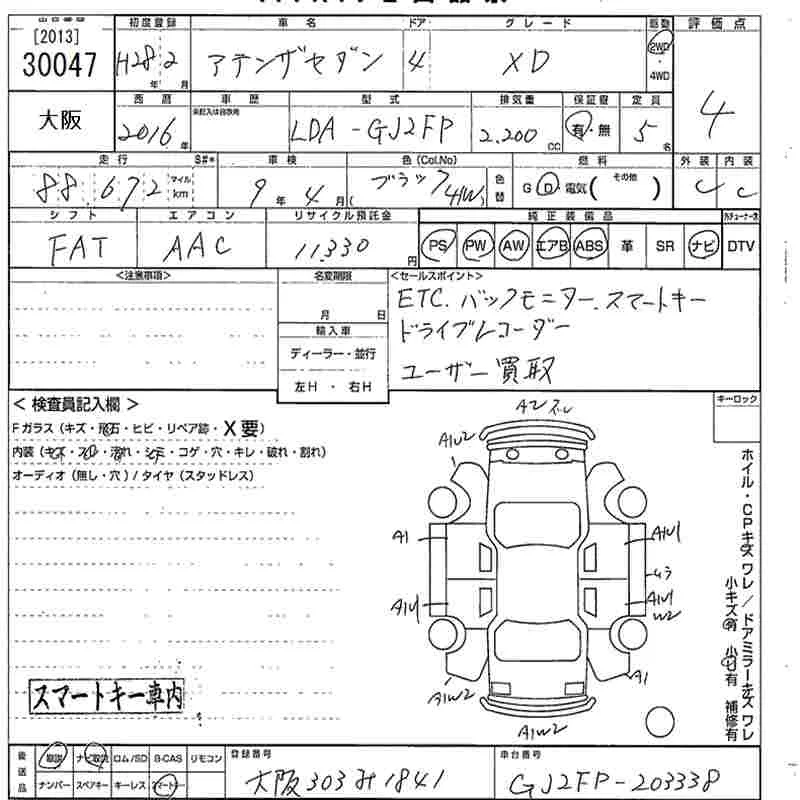 [2013] 初度登録 車名 ドア グレード 駆動 評価点
30047 H28年2月 アテンザセダン 4 XD 2WD 4WD 4
大阪 西暦 車歴 型式 排気量 保証書 定員
2016年 未記入は自家用 LDA-GJ2FP 2.200CC 有・無 5名
走行 S#* 車検 色(Col.No) 燃料 外装 内装
88,672 マイル km 9年4月 ブラック(41W) 色替 G D・電気( その他 ) C C
シフト エアコン リサイクル預託金 純正装備品
FAT AAC 11,330円 PS PW AW エアB ABS 革 SR ナビ DTV
<注意事項> 名変期限 <セールスポイント>
月 日 ETC.バックモニター.スマートキー
輸入車 ドライブレコーダー
ディーラー・並行 ユーザー買取
左H・右H
<検査員記入欄> キーロック
Fガラス(キズ・飛石・ヒビ・リペア跡・X要)
内装(キズ・スレ・汚れ・シミ・コゲ・穴・キレ・破れ・割れ)
オーディオ(無し・穴)/タイヤ(スタッドレス)
A2 ズレ
A1U2
A1 A1U1
ムラ
A1U1 A1U1
W2
A1W2 A1
A1W2
ホイル・CPキズ ワレ/ドアミラーキズ ワレ
小キズ有 小凹有 補修有
スマートキー車内
後送品 取説 ナビ取説 ロム/SD B-CAS リモコン 登録番号 車台番号
ナンバー スペアキー キーレス スマートキー 大阪303み1841 GJ2FP-203338